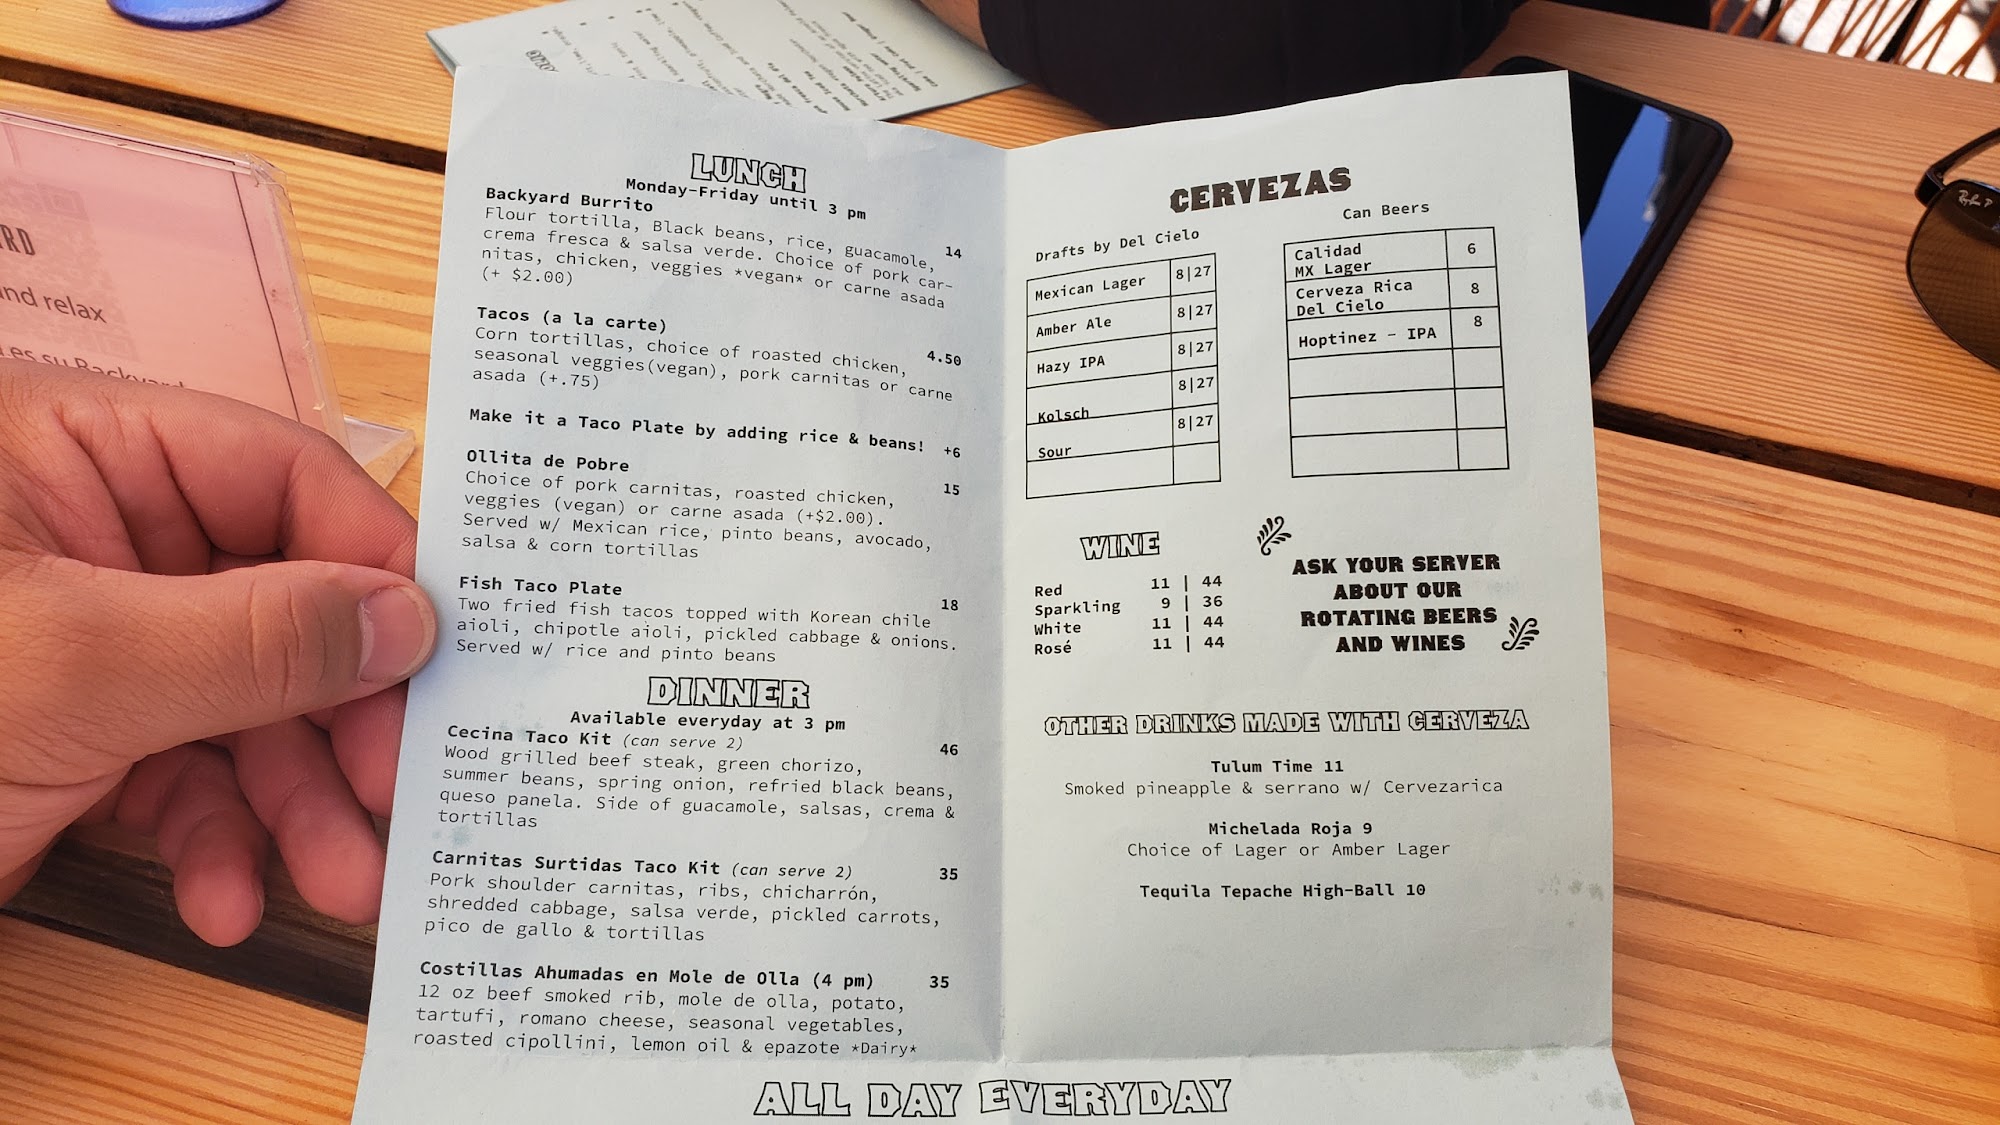 LUNCH
Monday-Friday until 3 pm
Backyard Burrito
14
Flour tortilla, Black beans, rice, guacamole,
crema fresca & salsa verde. Choice of pork car-
nitas, chicken, veggies *vegan* or carne asada
(+ $2.00)
Tacos (a la carte)
4.50
Corn tortillas, choice of roasted chicken,
seasonal veggies(vegan), pork carnitas or carne
asada (+.75)
Make it a Taco Plate by adding rice & beans! +6
Ollita de Pobre
15
Choice of pork carnitas, roasted chicken,
veggies (vegan) or carne asada (+$2.00).
Served w/ Mexican rice, pinto beans, avocado,
salsa & corn tortillas
Fish Taco Plate
18
Two fried fish tacos topped with Korean chile
aioli, chipotle aioli, pickled cabbage & onions.
Served w/ rice and pinto beans
DINNER
Available everyday at 3 pm
Cecina Taco Kit (can serve 2)
46
Wood grilled beef steak, green chorizo,
summer beans, spring onion, refried black beans,
queso panela. Side of guacamole, salsas, crema &
tortillas
Carnitas Surtidas Taco Kit (can serve 2)
35
Pork shoulder carnitas, ribs, chicharrón,
shredded cabbage, salsa verde, pickled carrots,
pico de gallo & tortillas
Costillas Ahumadas en Mole de Olla (4 pm)
35
12 oz beef smoked rib, mole de olla, potato,
tartufi, romano cheese, seasonal vegetables,
roasted cipollini, lemon oil & epazote *Dairy*
CERVEZAS
Drafts by Del Cielo
Mexican Lager 8|27
Amber Ale 8|27
Hazy IPA 8|27
Kolsch 8|27
Sour 8|27
Can Beers
Calidad
MX Lager 6
Cerveza Rica
Del Cielo 8
Hoptinez - IPA 8
WINE
Red 11 | 44
Sparkling 9 | 36
White 11 | 44
Rosé 11 | 44
ASK YOUR SERVER
ABOUT OUR
ROTATING BEERS
AND WINES
OTHER DRINKS MADE WITH CERVEZA
Tulum Time 11
Smoked pineapple & serrano w/ Cervezarica
Michelada Roja 9
Choice of Lager or Amber Lager
Tequila Tepache High-Ball 10
ALL DAY EVERYDAY
nd relax
su Backyard
Ray-Ban P